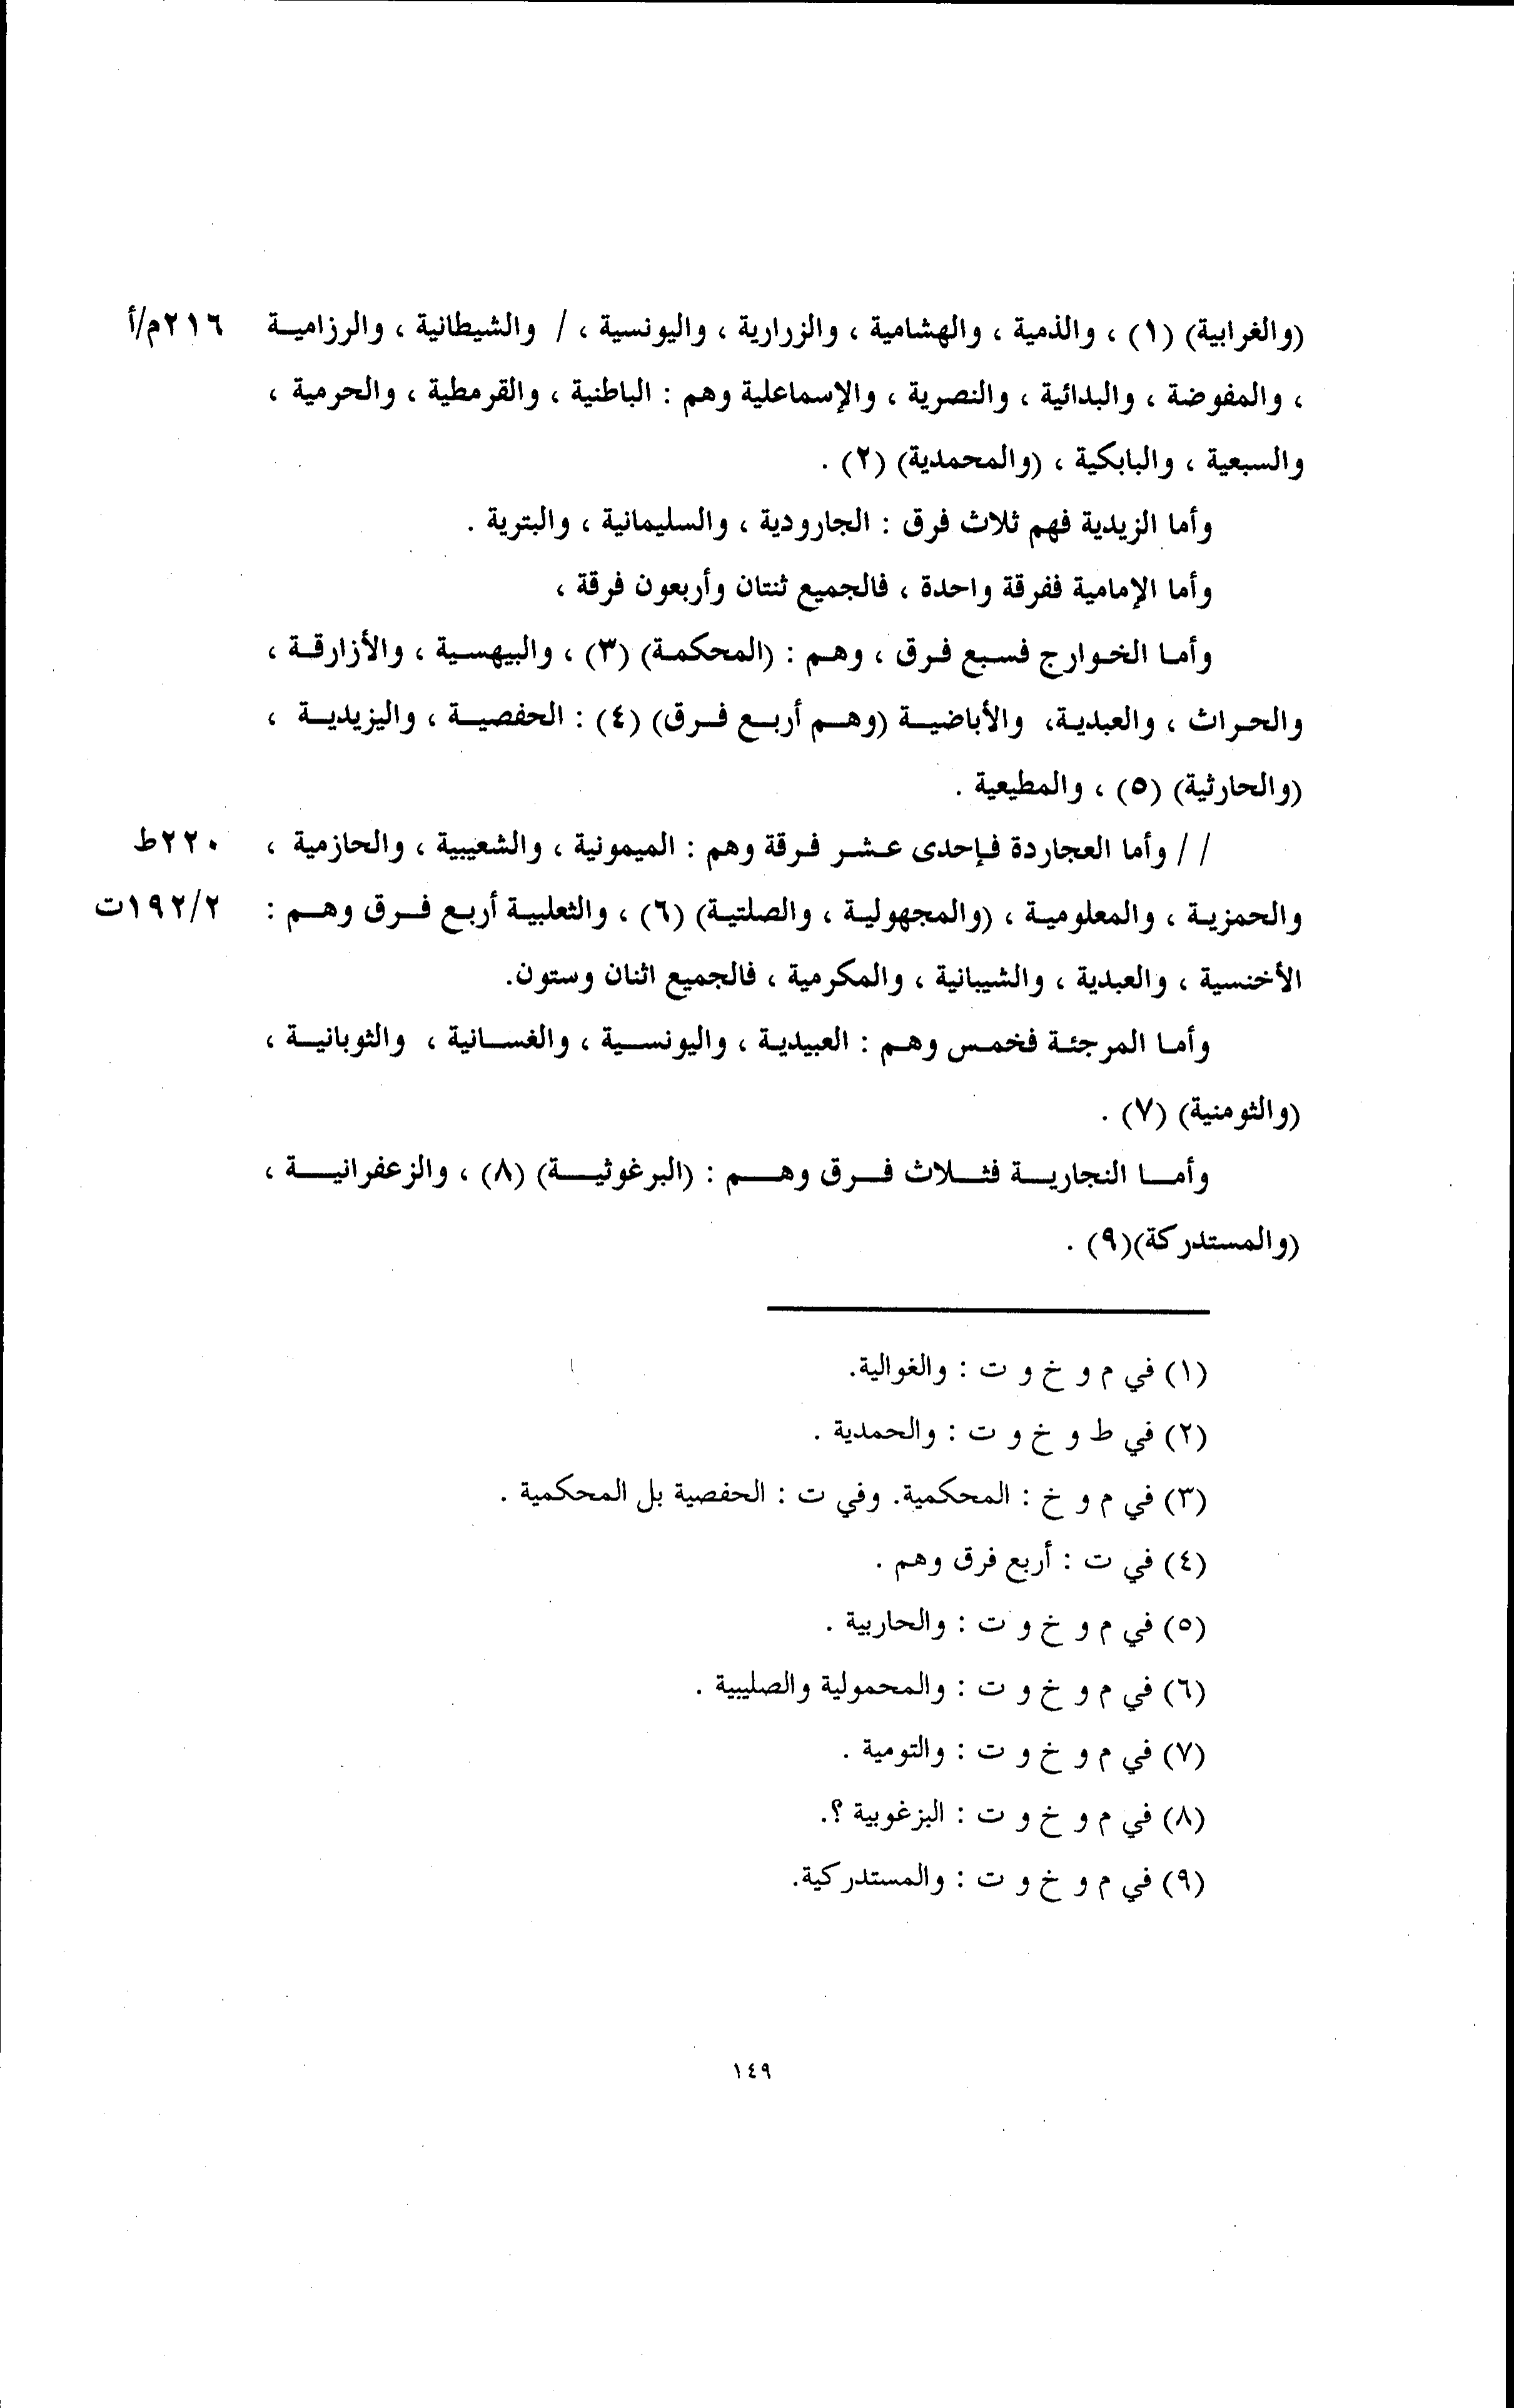 (والغرابية) (١) ، والذمية ، والهشامية ، والزرارية ، واليونسية ، / والشيطانية ، والرزامية ٢١٦م/أ
، والمفوضة ، والبدائية ، والنصرية ، والإسماعلية وهم : الباطنية ، والقرمطية ، والحرمية ،
والسبعية ، والبابكية ، (والمحمدية) (٢) .
وأما الزيدية فهم ثلاث فرق : الجارودية ، والسليمانية ، والبترية .
وأما الإمامية ففرقة واحدة ، فالجميع ثنتان وأربعون فرقة ،
وأما الخوارج فسبع فرق ، وهم : (المحكمة) (٣) ، والبيهسية ، والأزارقة ،
والحراث ، والعبدية، والأباضية (وهم أربع فرق) (٤) : الحفصية ، واليزيدية ،
(والحارثية) (٥) ، والمطيعية .
/ / وأما العجاردة فإحدى عشر فرقة وهم : الميمونية ، والشعيبية ، والحازمية ، ٢٢٠ط
والحمزية ، والمعلومية ، (والمجهولية ، والصلتية) (٦) ، والثعلبية أربع فرق وهم : ١٩٢/٢ت
الأخنسية ، والعبدية ، والشيبانية ، والمكرمية ، فالجميع اثنان وستون.
وأما المرجئة فخمس وهم : العبيدية ، واليونسية ، والغسانية ، والثوبانية ،
(والثومنية) (٧) .
وأما النجارية فثلاث فرق وهم : (البرغوثية) (٨) ، والزعفرانية ،
(والمستدركة)(٩) .
(١) في م و خ و ت : والغوالية.
(٢) في ط و خ و ت : والحمدية .
(٣) في م و خ : المحكمية. وفي ت : الحفصية بل المحكمية .
(٤) في ت : أربع فرق وهم .
(٥) في م و خ و ت : والحاربية .
(٦) في م و خ و ت : والمحمولية والصليبية .
(٧) في م و خ و ت : والتومية .
(٨) في م و خ و ت : البزغوبية ؟.
(٩) في م و خ و ت : والمستدركية.
١٤٩